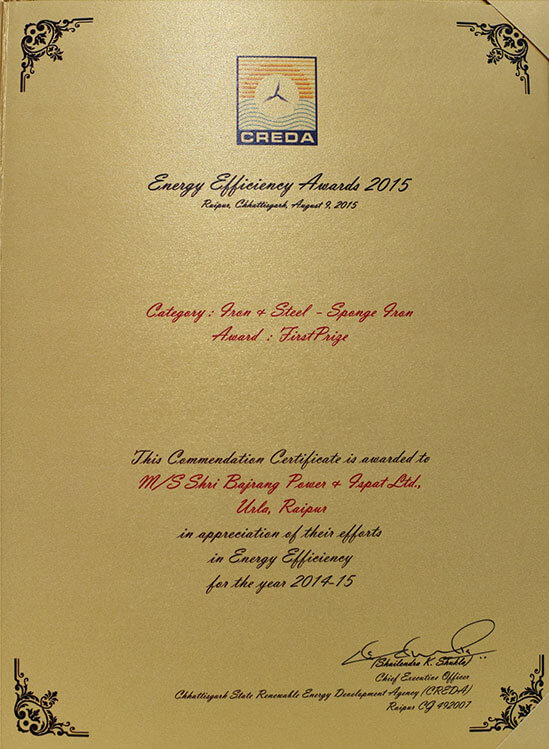 CREDA
Energy Efficiency Awards 2015
Raipur, Chhattisgarh, August 9, 2015
Category : Iron & Steel - Sponge Iron
Award : First Prize
This Commendation Certificate is awarded to
M/S Shri Bajrang Power & Ispat Ltd.,
Urla, Raipur
in appreciation of their efforts
in Energy Efficiency
for the year 2014-15
(Shailendra K. Shukla)
Chief Executive Officer
Chhattisgarh State Renewable Energy Development Agency (CREDA)
Raipur CG 492007